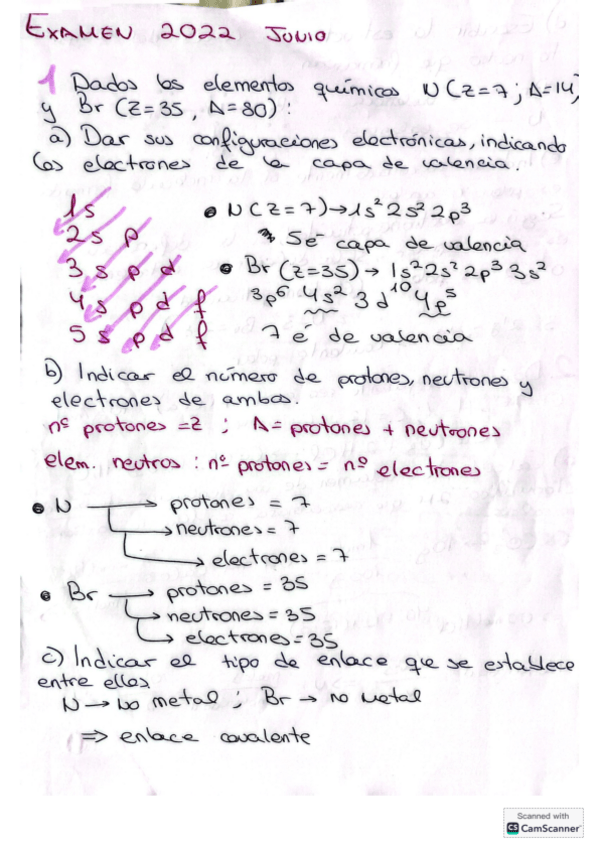 EXAMEN 2022 JUNIO
1 Dados los elementos químicos N (Z=7; A=14)
y Br (Z=35, A=80):
a) Dar sus configuraciones electrónicas, indicando
los electrones de la capa de valencia.
1s
2s p
3 s p d
4s p d f
5 s p d f
• N (Z=7) → 1s² 2s² 2p³
5é capa de valencia
• Br (Z=35) → 1s² 2s² 2p³ 3s²
3p⁶ 4s² 3d¹⁰ 4p⁵
7 é de valencia
b) Indicar el número de protones, neutrones y
electrones de ambos.
nº protones = Z ; A= protones + neutrones
elem. neutros : nº protones = nº electrones
• N → protones = 7
→ neutrones = 7
→ electrones = 7
• Br → protones = 35
→ neutrones = 35
→ electrones = 35
c) Indicar el tipo de enlace que se establece
entre ellos
N → No metal ; Br → no metal
⇒ enlace covalente
Scanned with
CS CamScanner